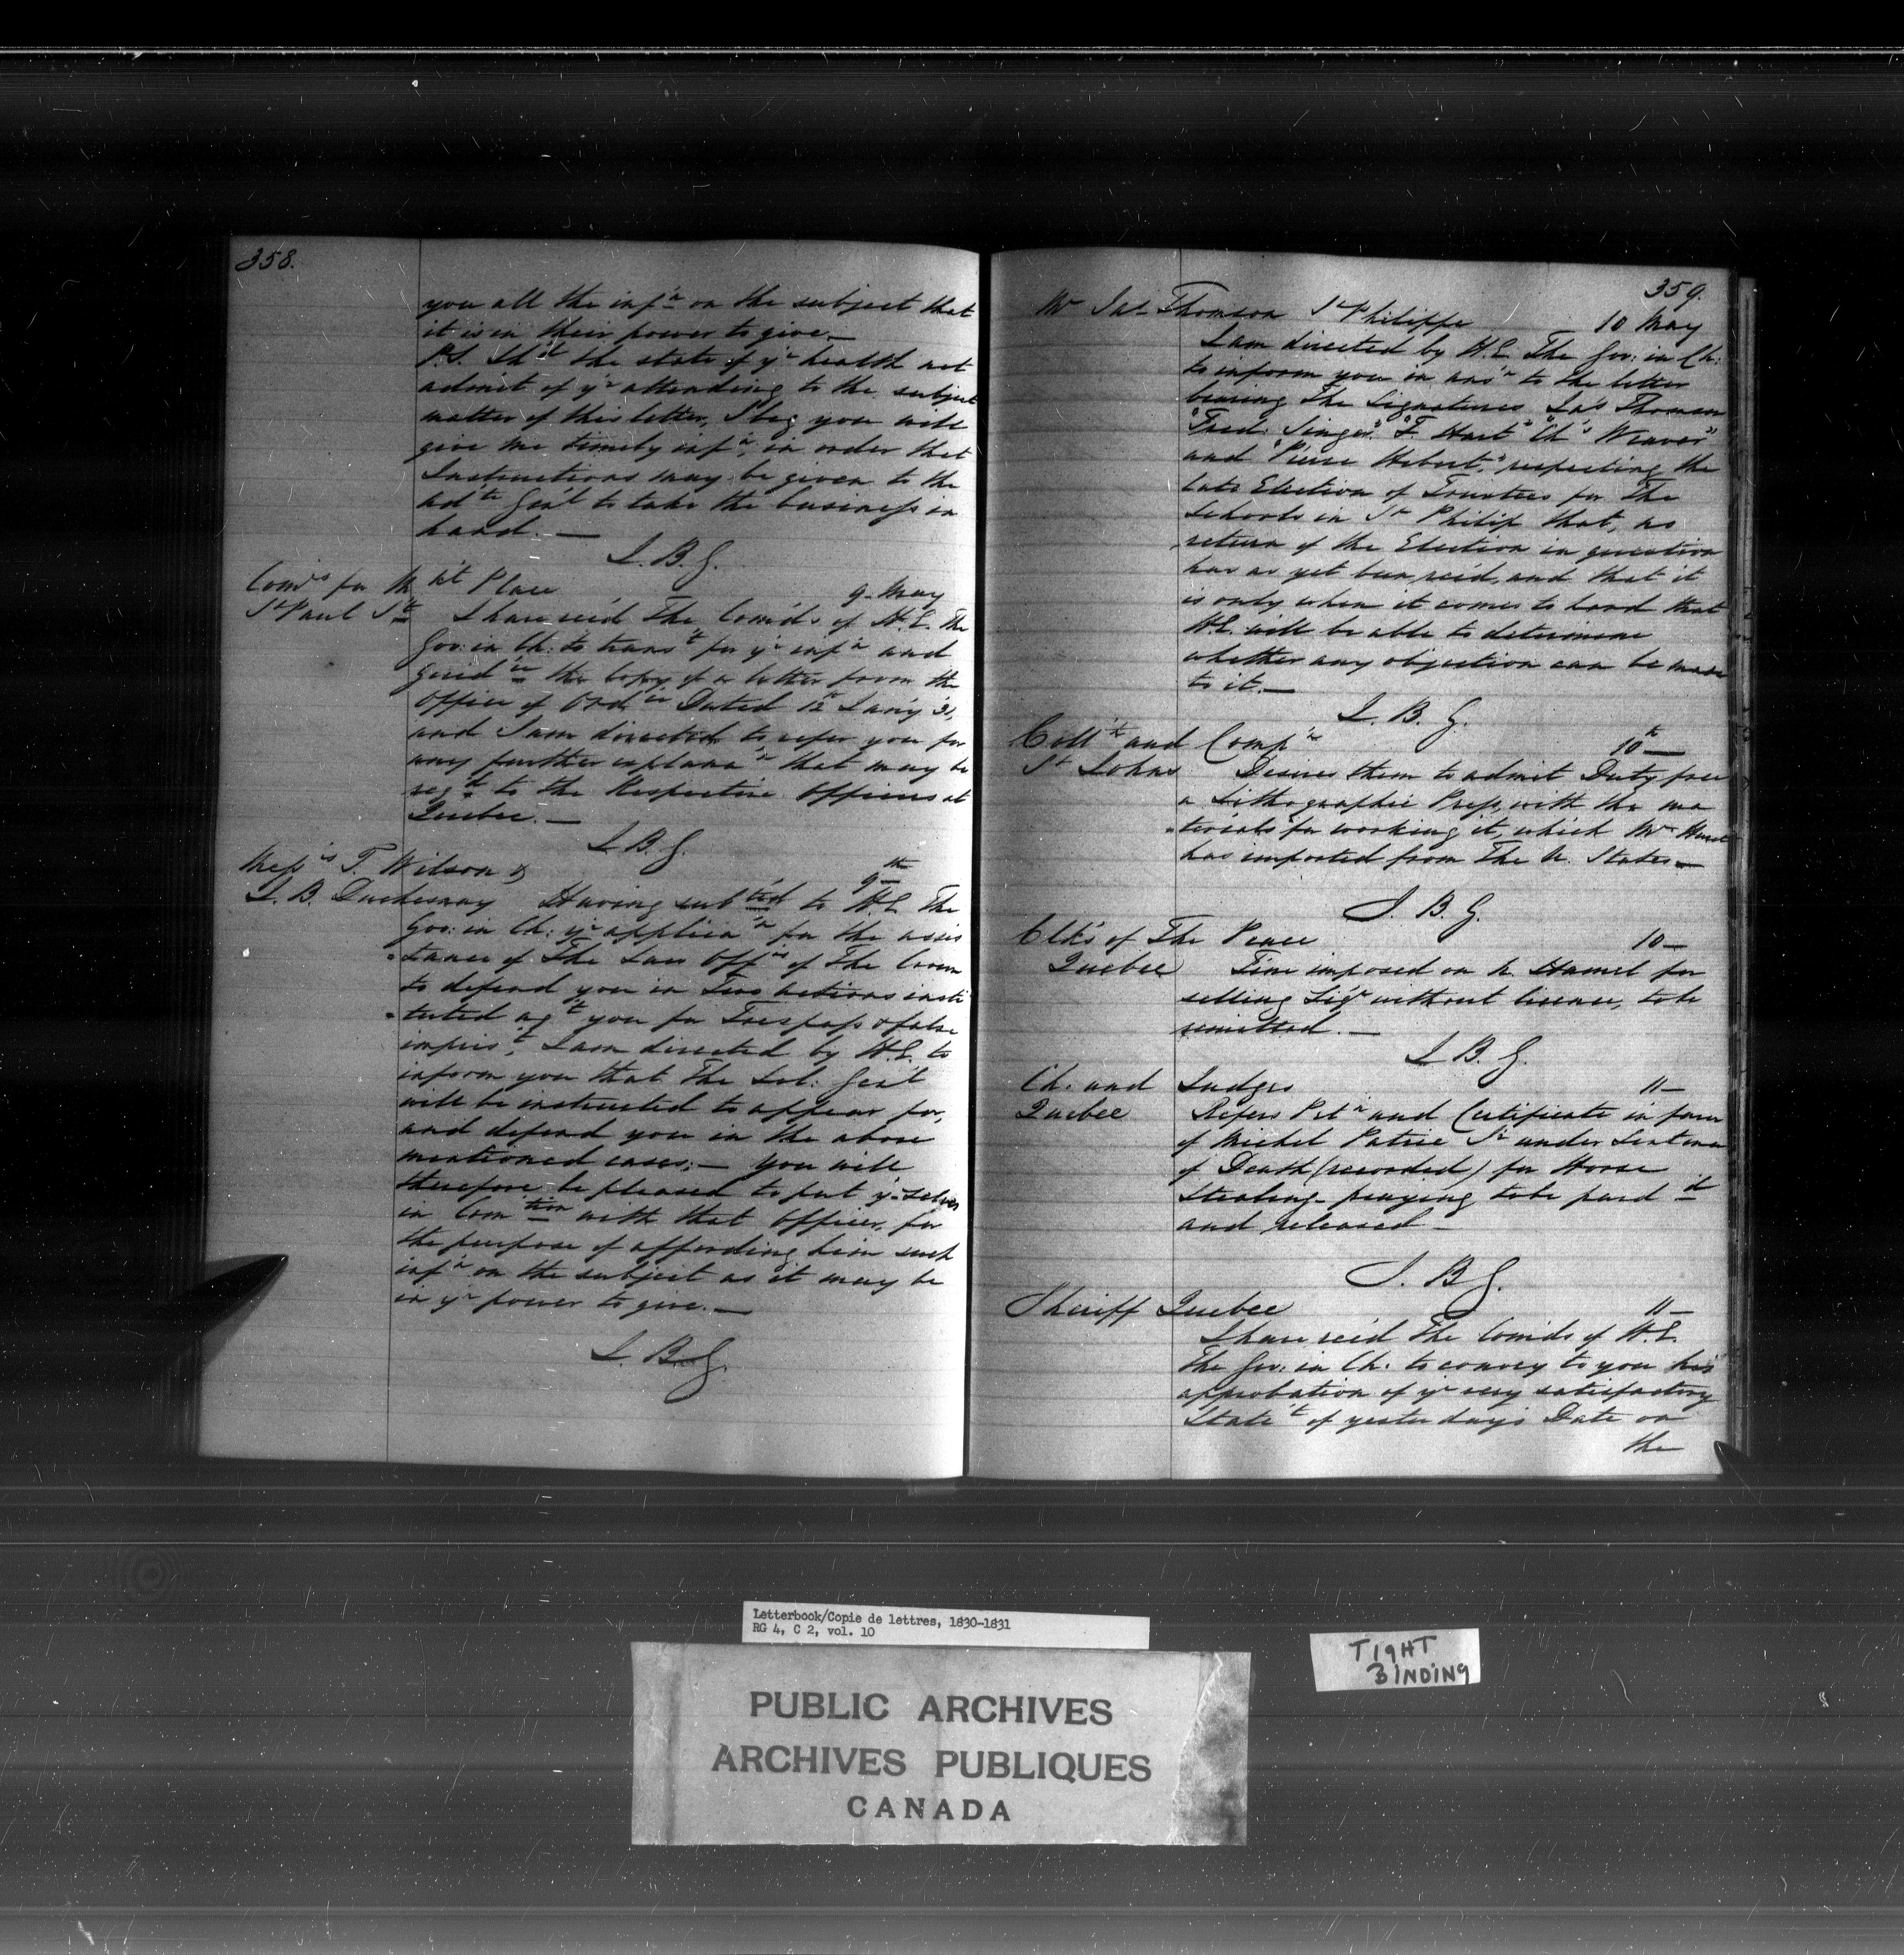 358.
you all the inf'n on the subject that
it is in their power to give.—
P.S. Sh'd the state of y'r health not
admit of y'r attending to the subject
matter of this letter, I beg you will
give me timely inf'n, in order that
Instructions may be given to the
Ad'te Gen'l to take the business in
hand.—
J. B. G.
Com'rs for M'kt Place 9 May
St Paul St.
I have rec'd The Com'ds of H.E. The
Gov: in Ch: to trans't for y'r inf'n and
guid'ce the copy of a letter from the
Office of Ord'ce Dated 12th Jan'y 31,
and I am directed to refer you for
any further explana'n that may be
req'd to the Respective Officers at
Quebec.—
J. B. G.
Mess'rs T. Wilson & 9th
J. B. Duchesnay Having sub'ted to H.E. The
Gov: in Ch: y'r applica'n for the assis
-tance of The Law Off'rs of The Crown
to defend you in Two actions insti
-tuted ag't you for Trespass & false
impris't, I am directed by H.E. to
inform you that The Sol: Gen'l
will be instructed to appear for,
and defend you in the above
mentioned cases;— You will
therefore be pleased to put y'r selves
in Com'tion with that Officer, for
the purpose of affording him such
inf'n on the subject as it may be
in y'r power to give.—
J. B. G.
359.
Mr Jas Thomson St Philippe 10 May
I am directed by H.E. The Gov: in Ch:
to inform you in ans'r to the letter
bearing The Signatures "Jas Thomson"
"Fred: Singer" "F. Hart" "Ch's Weaver"
and "Pierre Hebert," respecting the
late Election of Trustees for The
Schools in St Philip that, no
return of the Election in question
has as yet been rec'd, and that it
is only when it comes to hand that
H.E. will be able to determine
whether any objection can be made
to it.—
J. B. G.
Coll'r and Comp'r 10th—
St Johns Desires them to admit Duty free
a Lithographic Press, with the ma
-terials for working it, which Mr
has imported from The U. States—
J. B. G.
Clk's of The Peace 10—
Quebec Fine imposed on Hamel for
selling Liq'r without license, to be
remitted.—
J. B. G.
Ch. and Judges 11—
Quebec Refers Pet'n and Certificate in favor
of Michel Patrie under Sentence
of Death (recorded) for Horse
Stealing praying to be pard'd
and released—
J. B. G.
Sheriff Quebec 11—
I have rec'd The Com'ds of H.E.
The Gov: in Ch. to convey to you his
approbation of y'r very satisfactory
State't of yesterday's Date on
the
Letterbook/Copie de lettres, 1830-1831
RG 4, C 2, vol. 10
TIGHT
BINDING
PUBLIC ARCHIVES
ARCHIVES PUBLIQUES
CANADA